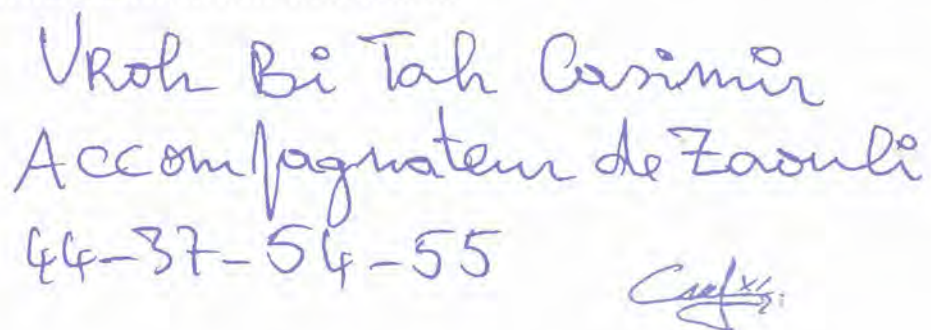 VRoh Bi Tah Casimir
Accompagnateur de Zaouli
44-37-54-55